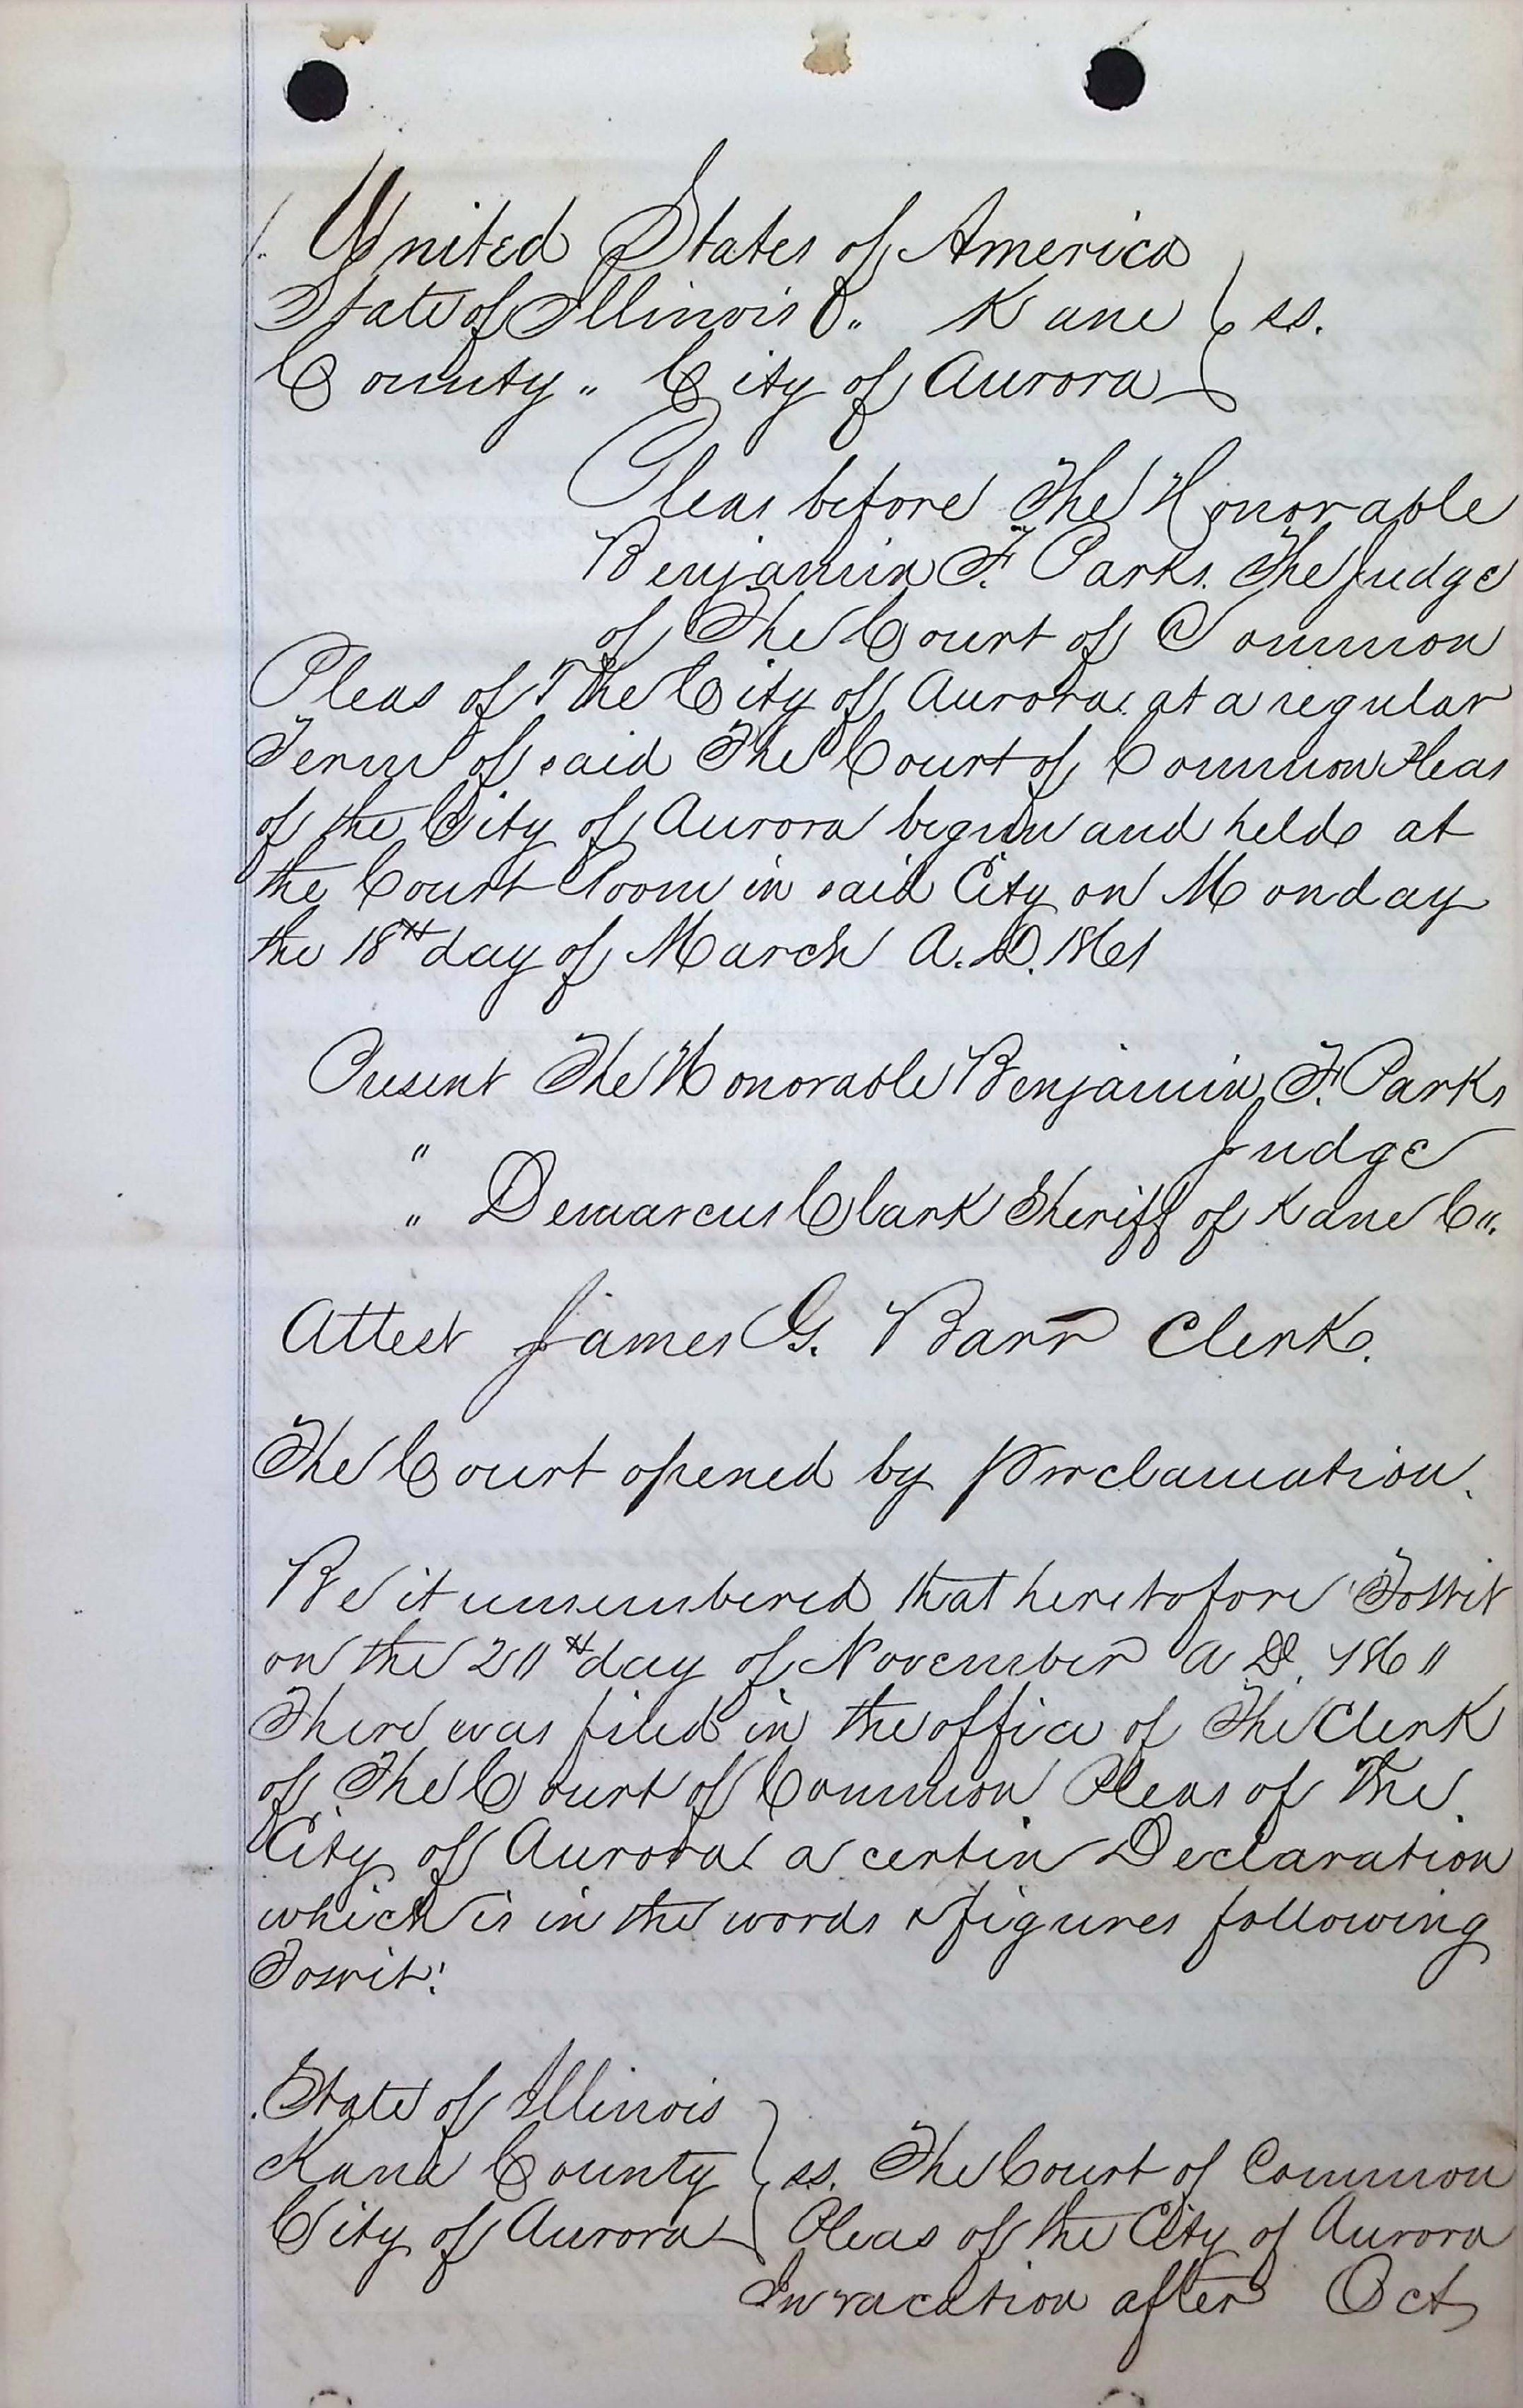 1. United States of America
State of Illinois ss. Kane } ss.
County " City of Aurora
Pleas before The Honorable
Benjamin F. Parks. The Judge
of The Court of Common
Pleas of The City of Aurora at a regular
Term of said The Court of Common Pleas
of the City of Aurora begun and held at
the Court Room in said City on Monday
the 18th day of March A.D. 1861
Present The Honorable Benjamin F. Parks
" Judge
" Demarcus Clark Sheriff of Kane Co.
Attest James G. Barr Clerk.
The Court opened by Proclamation.
Be it remembered that heretofore Towit
on the 20th day of November A D. 1860
There was filed in the office of The Clerk
of The Court of Common Pleas of The
City of Aurora a certin Declaration
which is in the words & figures following
Towit:
State of Illinois
Kane County } ss. The Court of Common
City of Aurora Pleas of the City of Aurora
In vacation after Oct